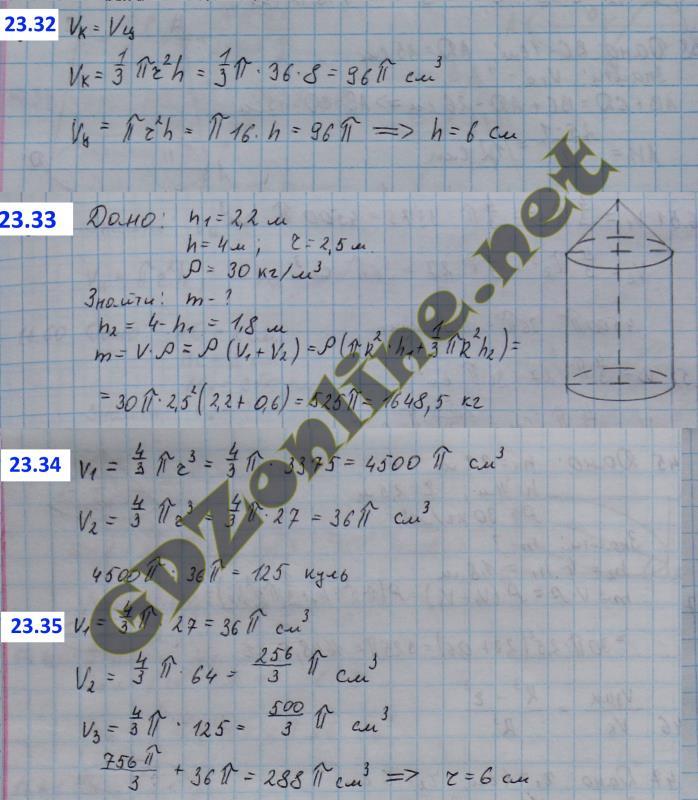 23.32 Vк = Vц
Vк = 1/3 πr²h = 1/3 π · 36 · 8 = 96π см³
Vц = πr²h = π16 · h = 96π ⟹ h = 6 см
23.33 Дано: h₁ = 2,2 м
h = 4 м ; r = 2,5 м.
ρ = 30 кг/м³
Знайти: m - ?
h₂ = 4 - h₁ = 1,8 м
m = V · ρ = ρ (V₁ + V₂) = ρ (πR² · h₁ + 1/3 πR²h₂) =
= 30π · 2,5² (2,2 + 0,6) = 525π = 1648,5 кг
23.34 V₁ = 4/3 πr³ = 4/3 π · 3375 = 4500 π см³
V₂ = 4/3 πr³ = 4/3 π · 27 = 36π см³
4500π : 36π = 125 куль
23.35 V₁ = 4/3 π · 27 = 36π см³
V₂ = 4/3 π · 64 = 256/3 π см³
V₃ = 4/3 π · 125 = 500/3 π см³
756π/3 + 36π = 288π см³ ⟹ r = 6 см
GDZonline.net